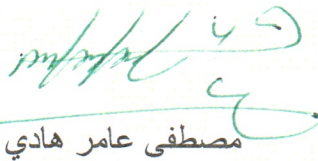 مصطفى عامر هادي